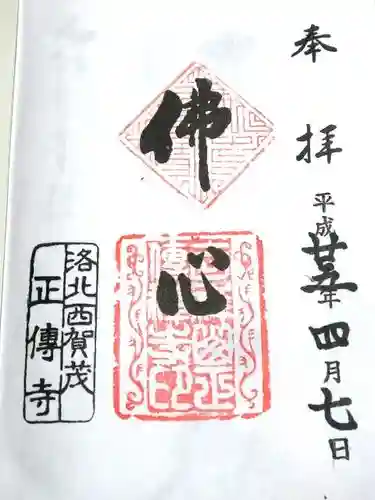 奉拝
平成廿五年四月七日
佛心
洛北西賀茂
正傳寺